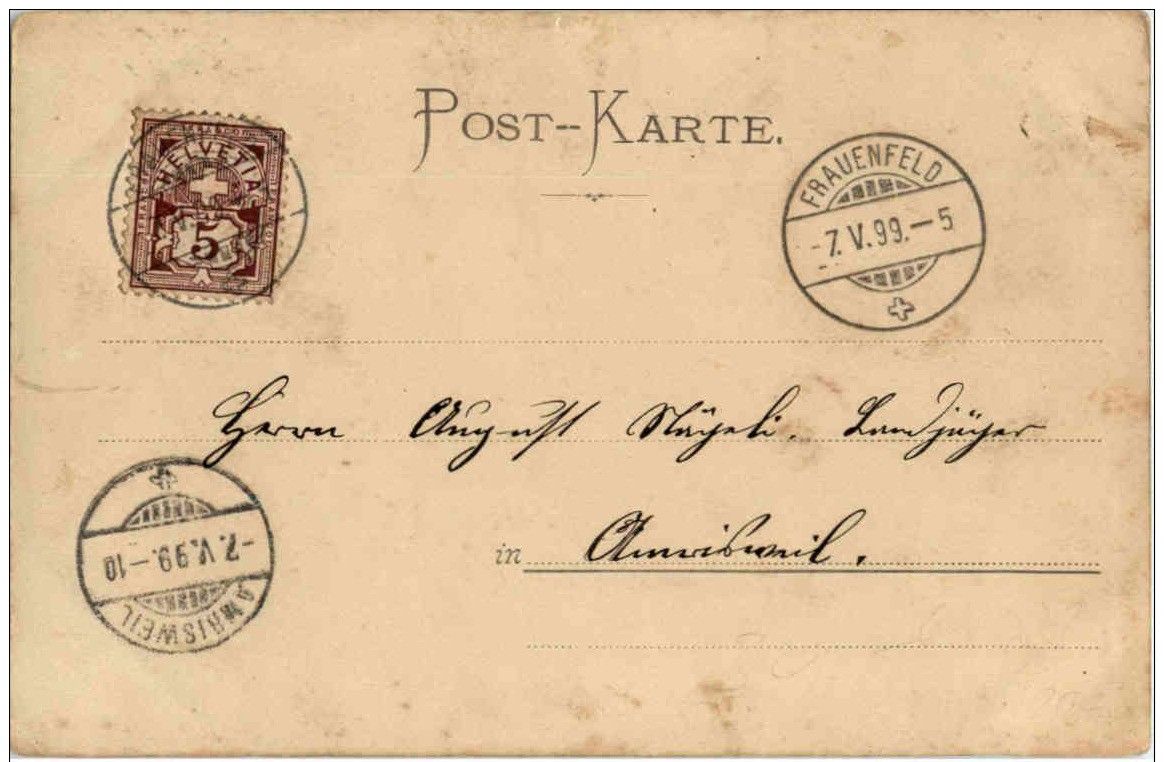 POST-KARTE.
HELVETIA
5
FRAUENFELD
-7.V.99.-5
Herrn August Nägeli. Landjäger
in Amrisweil.
-7.V.99.-10
AMRISWEIL